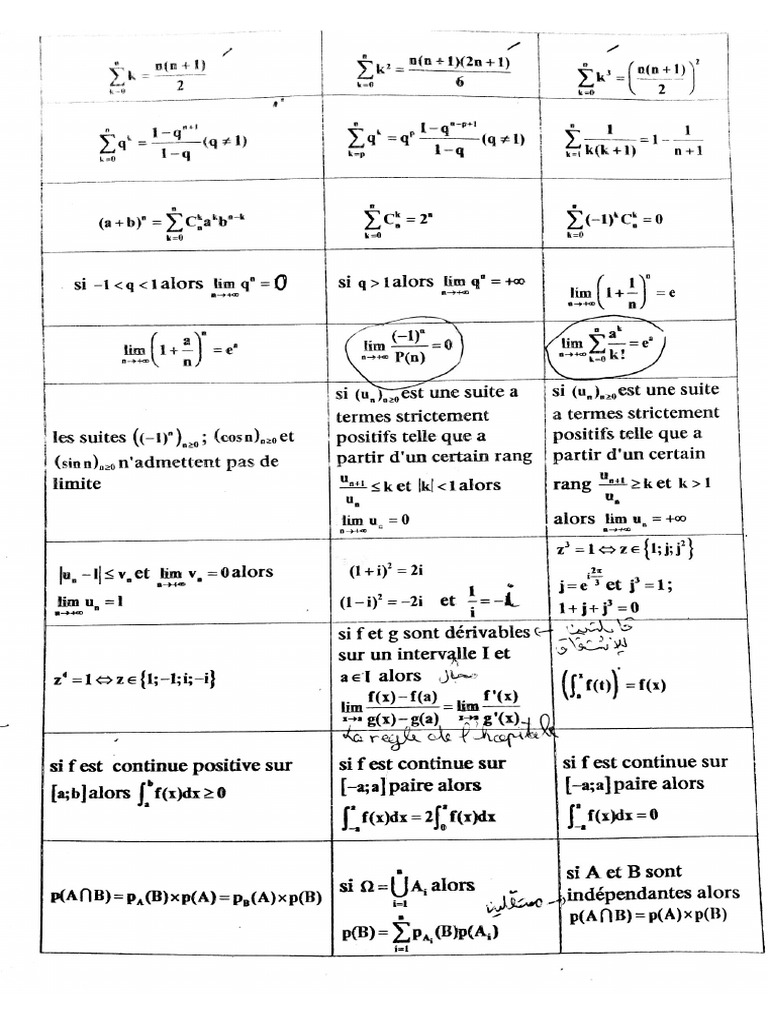 ∑_{k=0}^{n} k = n(n + 1)/2
∑_{k=0}^{n} k² = n(n + 1)(2n + 1)/6
∑_{k=0}^{n} k³ = (n(n + 1)/2)²
∑_{k=0}^{n} q^k = (1 − q^{n+1})/(1 − q) (q ≠ 1)
∑_{k=p}^{n} q^k = q^p (1 − q^{n−p+1})/(1 − q) (q ≠ 1)
∑_{k=1}^{n} 1/(k(k + 1)) = 1 − 1/(n + 1)
(a + b)^n = ∑_{k=0}^{n} C_n^k a^k b^{n−k}
∑_{k=0}^{n} C_n^k = 2^n
∑_{k=0}^{n} (−1)^k C_n^k = 0
si −1 < q < 1 alors lim_{n→+∞} q^n = 0
si q > 1 alors lim_{n→+∞} q^n = +∞
lim_{n→+∞} (1 + 1/n)^n = e
lim_{n→+∞} (1 + a/n)^n = e^a
lim_{n→+∞} (−1)^n/P(n) = 0
lim_{n→+∞} ∑_{k=0}^{n} a^k/k! = e^a
les suites ((−1)^n)_{n≥0} ; (cos n)_{n≥0} et
(sin n)_{n≥0} n'admettent pas de
limite
si (u_n)_{n≥0} est une suite a
termes strictement
positifs telle que a
partir d'un certain rang
u_{n+1}/u_n ≤ k et |k| < 1 alors
lim_{n→+∞} u_n = 0
si (u_n)_{n≥0} est une suite
a termes strictement
positifs telle que a
partir d'un certain
rang u_{n+1}/u_n ≥ k et k > 1
alors lim_{n→+∞} u_n = +∞
|u_n − l| ≤ v_n et lim_{n→+∞} v_n = 0 alors
lim_{n→+∞} u_n = l
(1 + i)² = 2i
(1 − i)² = −2i et 1/i = −i
z³ = 1 ⇔ z ∈ {1; j; j²}
j = e^{i 2π/3} et j³ = 1 ;
1 + j + j³ = 0
z⁴ = 1 ⇔ z ∈ {1; −1; i; −i}
si f et g sont dérivables
sur un intervalle I et
a ∈ I alors مجال
lim_{x→a} (f(x) − f(a))/(g(x) − g(a)) = lim_{x→a} f'(x)/g'(x)
La règle de l'hopitale
قابلتين
للإشتقاق
(∫_a^x f(t))' = f(x)
si f est continue positive sur
[a;b] alors ∫_a^b f(x)dx ≥ 0
si f est continue sur
[−a;a] paire alors
∫_{−a}^{a} f(x)dx = 2∫_0^a f(x)dx
si f est continue sur
[−a;a] paire alors
∫_{−a}^{a} f(x)dx = 0
p(A∩B) = p_A(B)×p(A) = p_B(A)×p(B)
si Ω = ⋃_{i=1}^{n} A_i alors
p(B) = ∑_{i=1}^{n} p_{A_i}(B)p(A_i)
مستقلين
si A et B sont
indépendantes alors
p(A∩B) = p(A)×p(B)